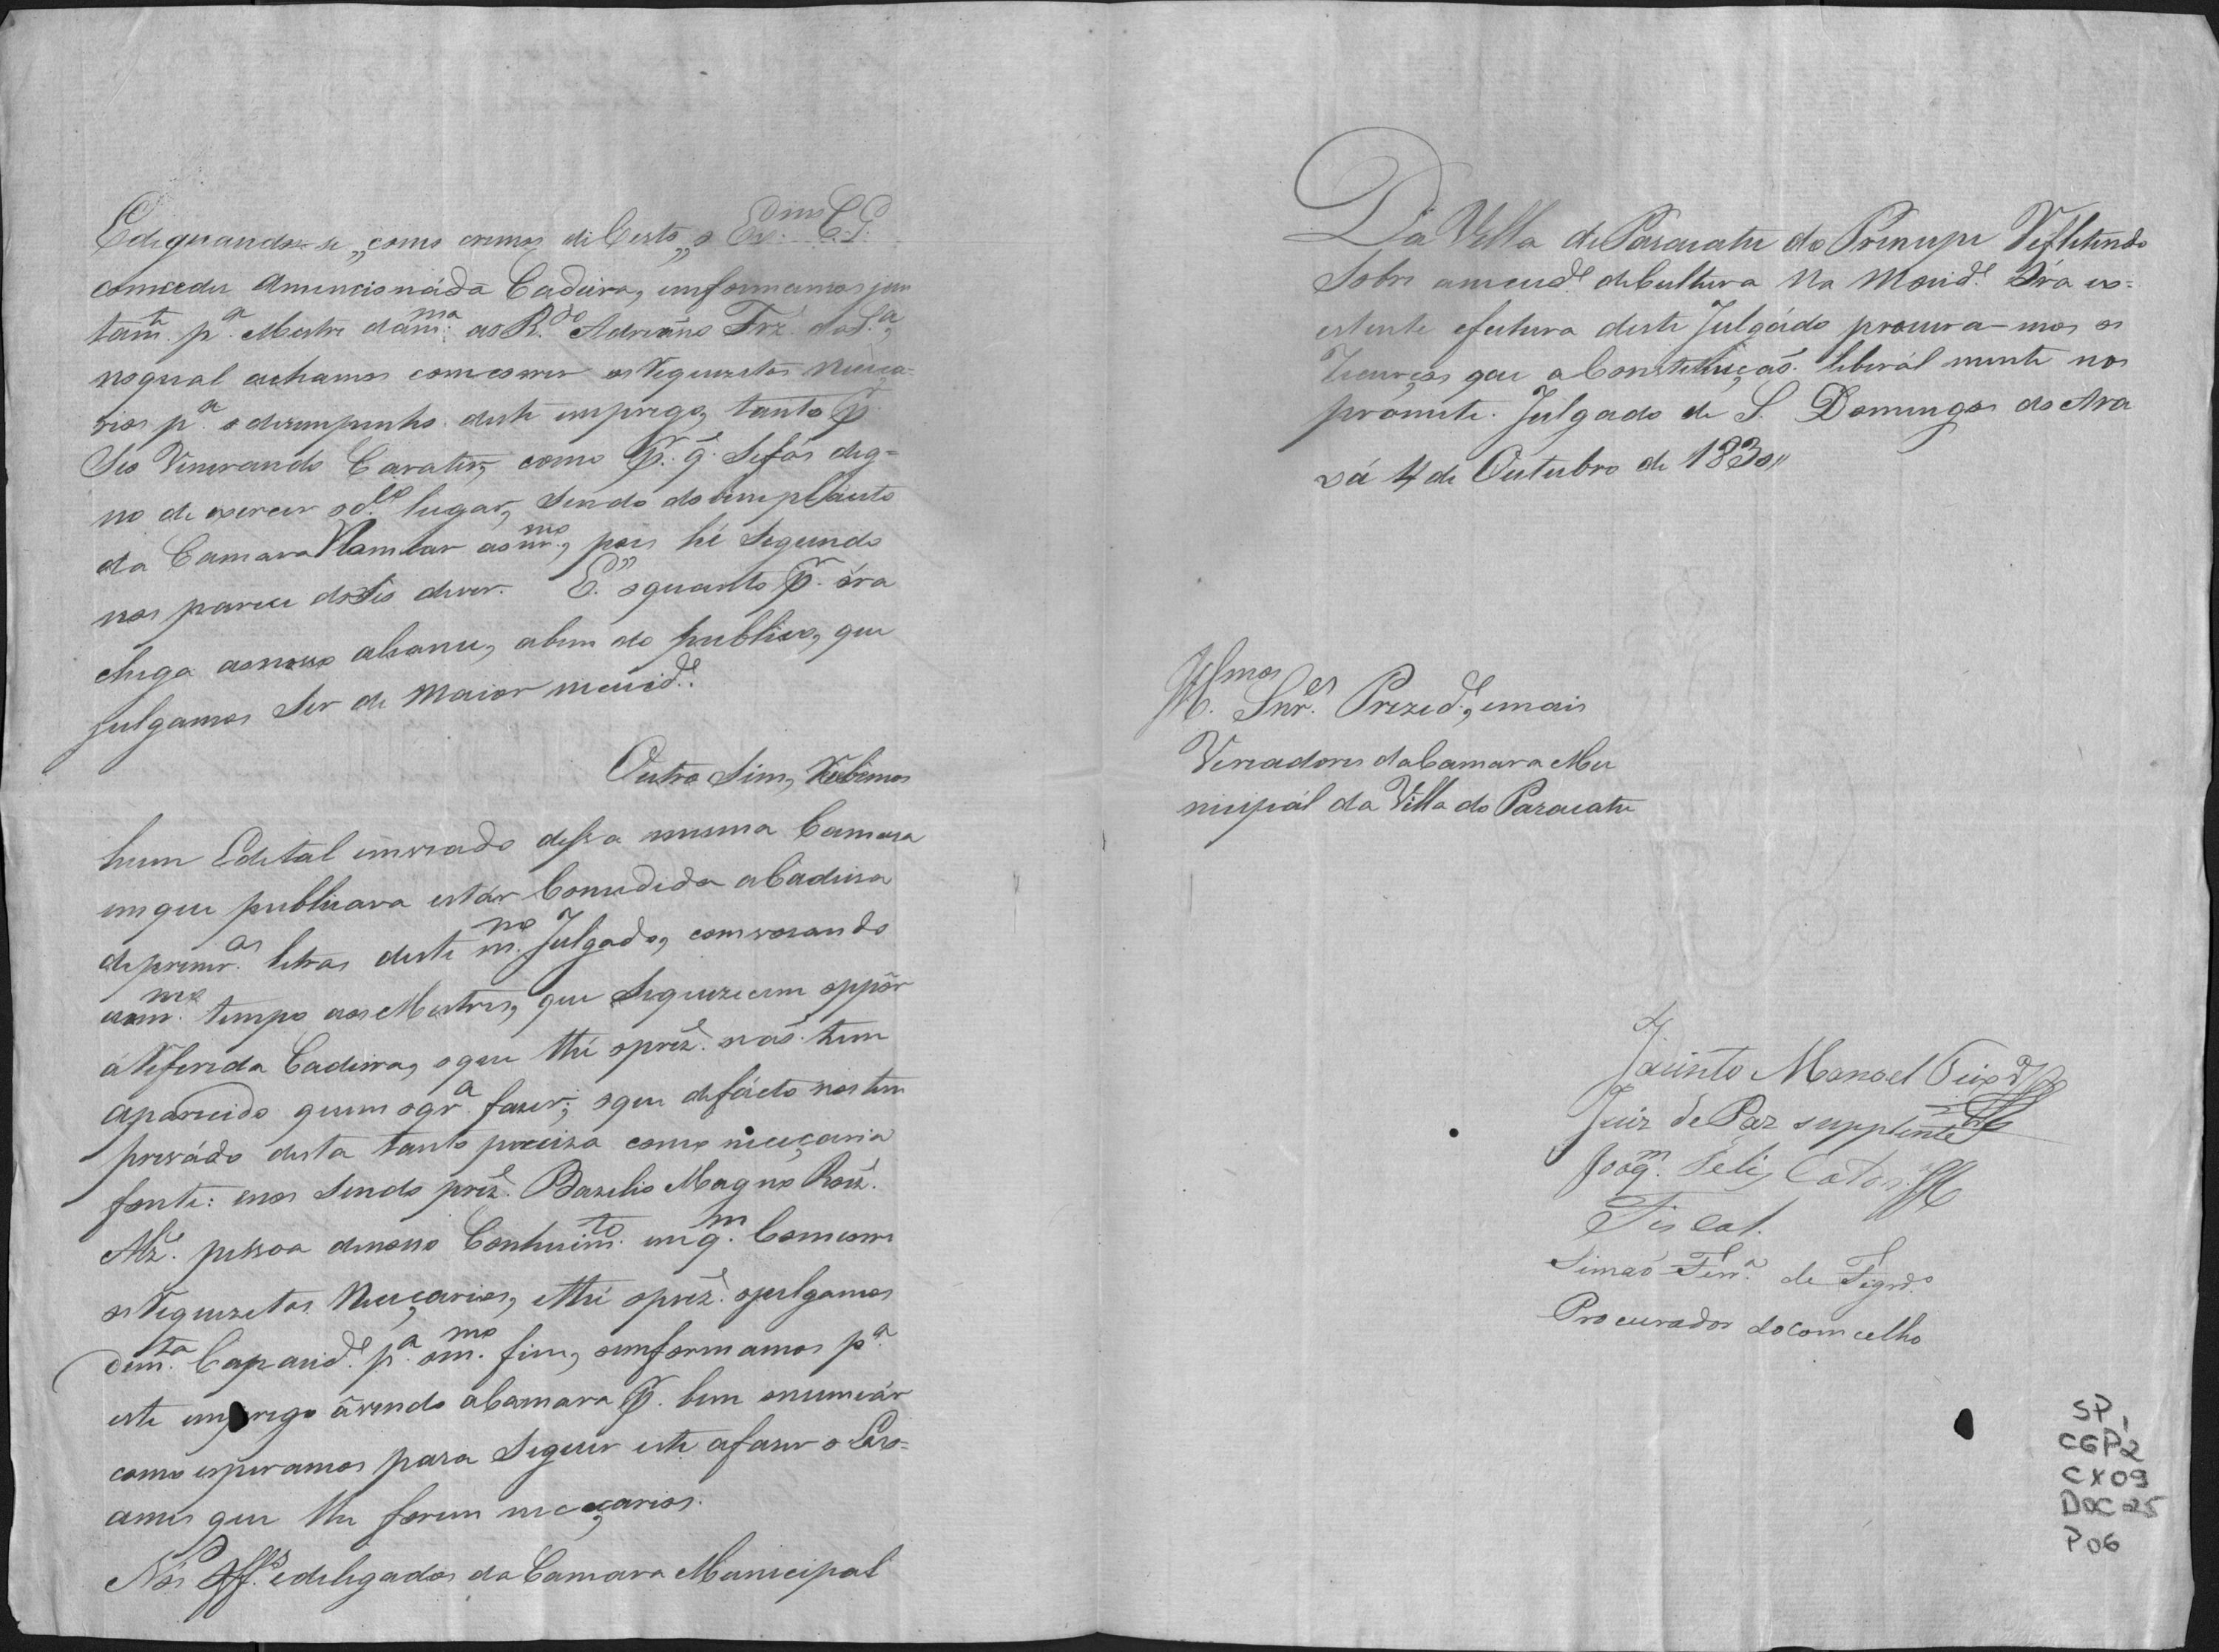 Edignando-se,, como cremos de Certo,, o Ex.mo C. P.
comceder amencionáda Cadeira, emformamos jun
tam.te p.a Mestre dam.ma ao R.do Adriáno Frz' da S.a,
noqual achamos comcorrer os Requezitos neceça-
rios p.a o dezempenho deste emprego, tanto p.r
Seo Venerando Carater, como p.r q' Sefás dig-
no de exercer od.to lugar, Sendo do
da Camara Nomear aom.mo, pois hé Segundo
nos parece doSeo dever. E' oquanto p.r óra
chega aonosso alcance, abem do publico, que
julgamos Ser de maior nececid.e
Outro Sim, Recebemos
hum Edital emviado dessa mesma Camara
emque publicava estár Comcedida aCadeira
deprimr.as letras deste m.mo Julgado, comvocando
aom.mo tempo aos Mestres, que Sequizecem oppôr
áReferida Cadeira, oque thé oprez.e não tem
aparecido quem oqr.a fazer; oque defácto nos tem
previádo desta tanto preciza como neceçaria
fonte: enos Sendo prez.e Bazilio Magno Roiz'
Alz' pessoa denosso Conhecim.to emq.m Comcorre
os Requezitos Neceçarios, ethé oprez.e ojulgamos
dem.ta Capacid.e p.a om.mo fim, oemformamos p.a
este emprego ávendo aCamara p.r bem onumiár
como esperamos para Seguir este afazer o Exs-
ames que lhe forem neceçarios.
Nós Off.es edelegados da Camara Municipal
Da Villa de Paracatu do Principe Refletindo
Sobre anecid.e deCultura Na Mocid.e Óra ex-
estente efutura deste Julgádo procura-mos os
Recurços que aConstetuição liberál mente nos
prómete. Julgado de S. Domingos do Ara
xá 4 de Outubro de 1830,,
Ill.mos Snr.es Prezed.e, emais
Vereadores daCamara Mu
nicipál da Villa do Paracatu
Jacinto Manoel
Juiz de Paz supplente
Joaq.m Felis
Fiscal.
Simaõ Ferr.a de Figrdo
Procurador docomcelho
SP1
CGP2
CX09
DOC 25
P06